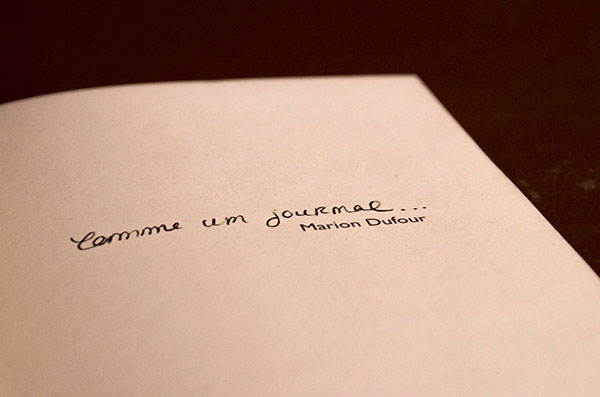 Comme un journal...
Marion Dufour